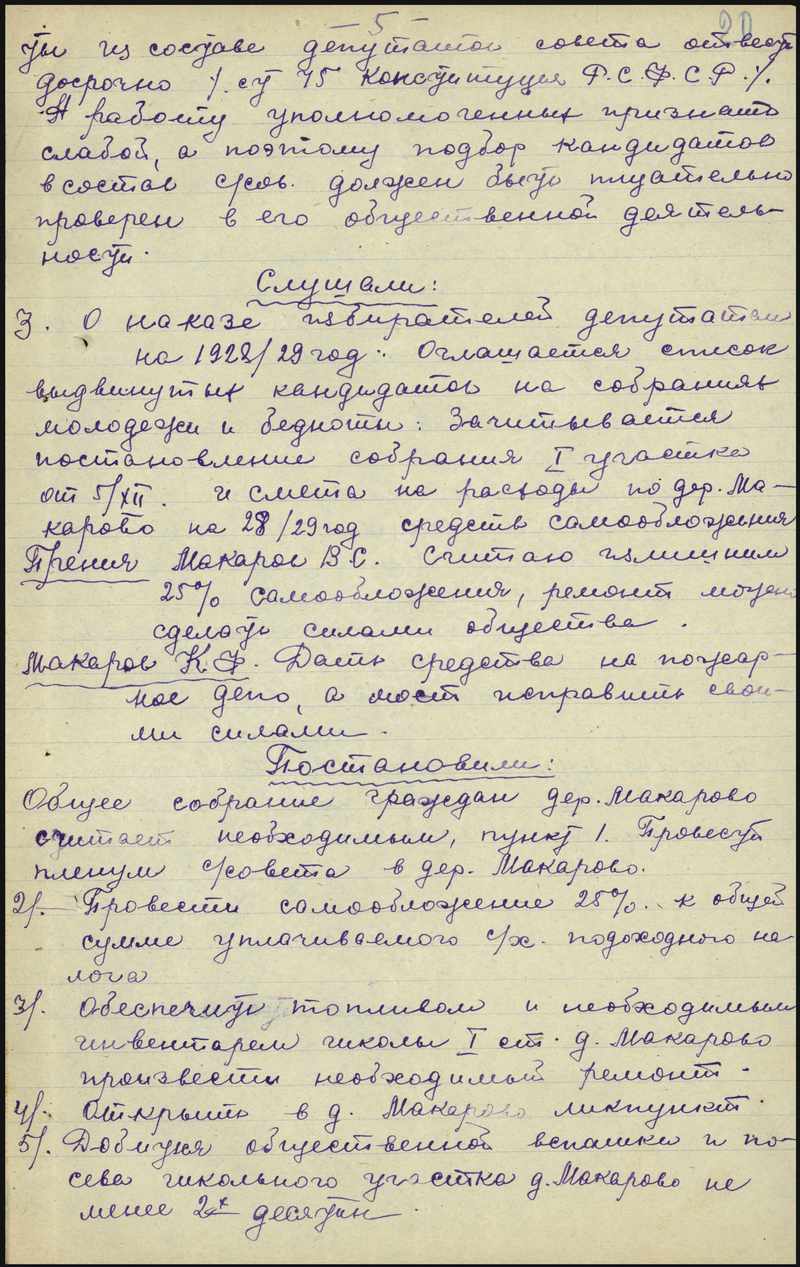 – 5 –
20
ты из составе депутатов совета отвести
досрочно /. ст 75 Конституции Р.С.Ф.С.Р. /.
А работу уполномоченных признать
слабой, а поэтому подбор кандидатов
в состав с/сов. должен быть тщательно
проверен в его общественной деятель-
ности.
Слушали:
3. О наказе избирателей депутатам
на 1928/29 год. Оглашается список
выдвинутых кандидатов на собраниях
молодежи и бедноты: Зачитывается
постановление собрания I участка
от 5/XII. и смета на расходы по дер. Ма-
карово на 28/29 год средств самообложения
Прения Макаров В.С. Считаю излишним
25% самообложения, ремонт можно
сделать силами общества.
Макаров К.Ф. Дать средства на пожар-
ное депо, а мост исправить свои-
ми силами.
Постановили:
Общее собрание граждан дер. Макарово
считает необходимым, пункт 1. Провести
пленум с/совета в дер. Макарово.
2/. Провести самообложение 25%. к общей
сумме уплачиваемого с/х. подоходного на-
лога
3/. Обеспечить топливом и необходимым
инвентарем школы I ст. д. Макарово
произвести необходимый ремонт.
4/. Открыть в д. Макарово ликпункт.
5/. Добиться общественной вспашки и по-
сева школьного участка д. Макарово не
менее 2х десятин.